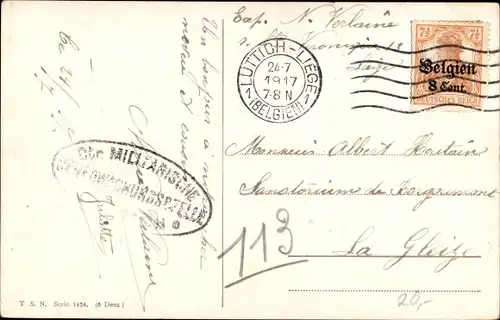 Exp. N. Verlaine
Liége
LÜTTICH-LIÉGE
24.7
1917
7-8 N
1 (BELGIEN) 1
7½ 7½
Belgien
8 Cent.
DEUTSCHES REICH
Monsieur Albert Houtain
Sanatorium de Borgoumont
La Gleize
113
20,-
Un bonjour à
Juliette
Verlaine
MILITÄRISCHE
ÜBERWACHUNGSSTELLE
T S. N. Serie 1424. (6 Dess.)